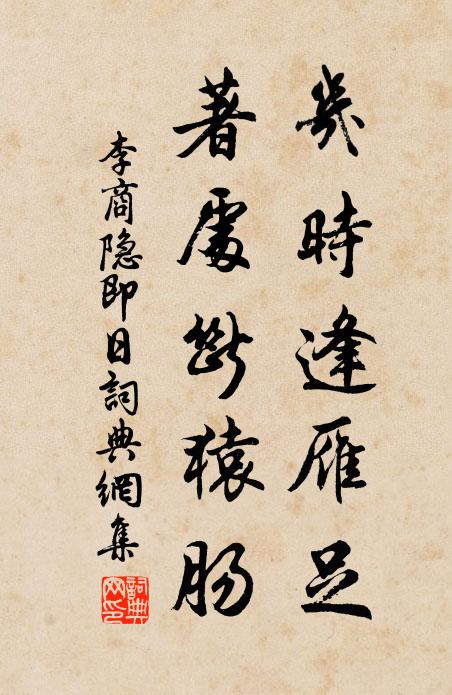 幾時逢雁足
著處斷猿腸
李商隐即日詞典網集
詞典網印